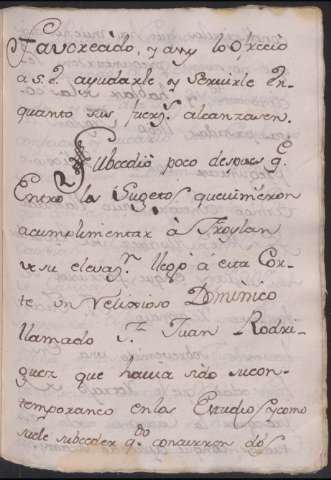 Favorecido, y assy lo Ofrecio
a S. E. ayudarle, y servirle En
quanto sus fuerz.s alcanzasen.
Subcedio poco despues q.e
Entro los Sugetos que vinieron
a cumplimentar à Froylan
de su elevaz.n llegò à esta Cor-
te un Relixioso Dominico
llamado F. Juan Rodri-
guez que havia sido su con-
temporaneo en los Estudios y como
suele subceder q.do concurren dos